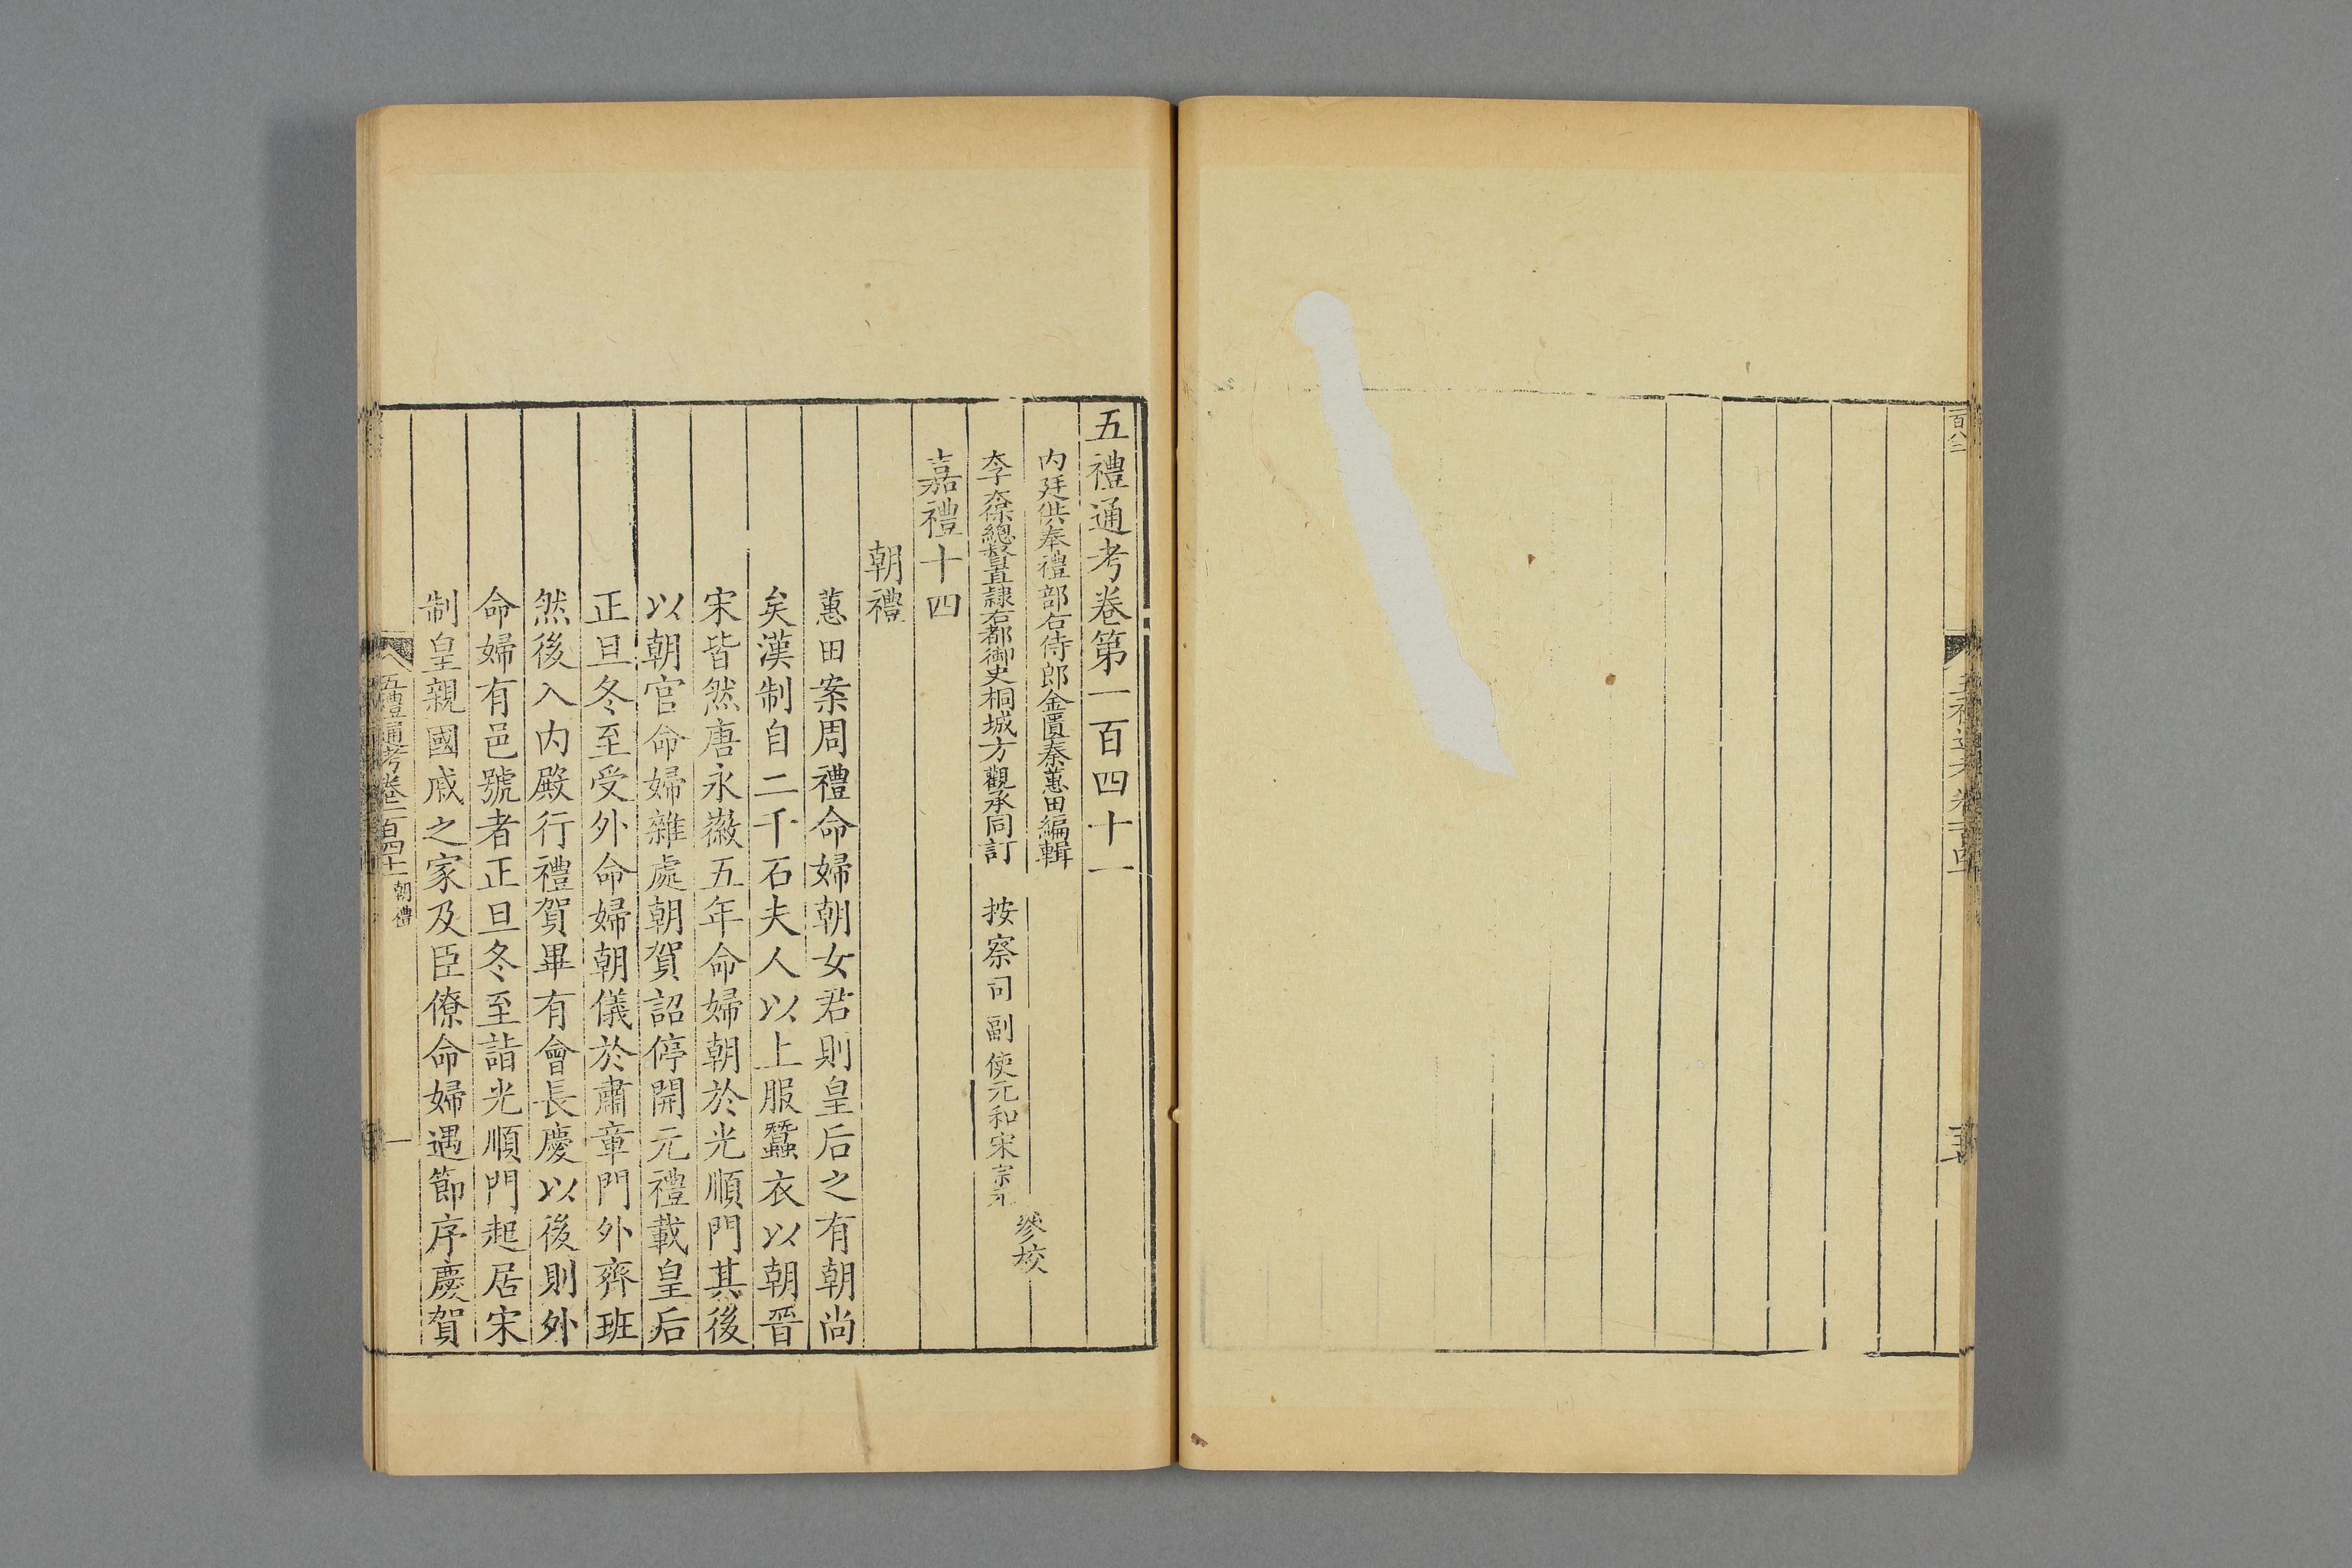 五禮通考卷第一百四十一
内廷供奉禮部右侍郎金匱秦蕙田編輯
太子太保總督直隸右都御史桐城方觀承同訂
按察司副使元和宋宗元
參校
嘉禮十四
朝禮
蕙田案周禮命婦朝女君則皇后之有朝尚
矣漢制自二千石夫人以上服蠶衣以朝晉
宋皆然唐永徽五年命婦朝於光順門其後
以朝官命婦雜處朝賀詔停開元禮載皇后
正旦冬至受外命婦朝儀於肅章門外齊班
然後入内殿行禮賀畢有會長慶以後則外
命婦有邑號者正旦冬至詣光順門起居宋
制皇親國戚之家及臣僚命婦遇節序慶賀
五禮通考卷一百四十一
朝禮
一